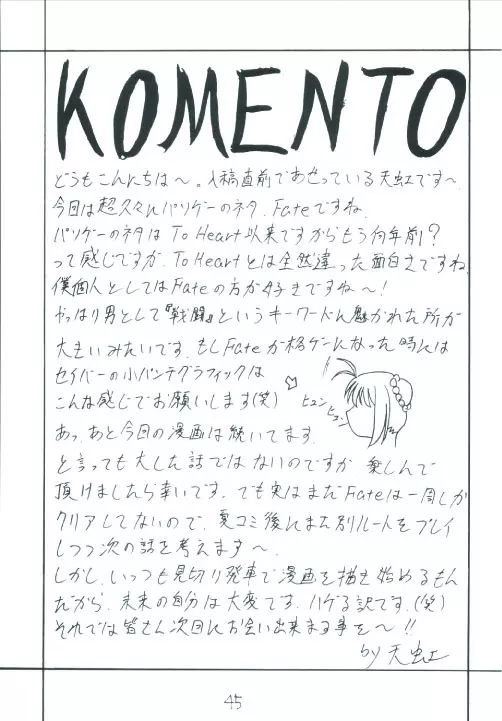 KOMENTO
どうもこんにちは〜。入稿直前であせっている天虹です〜
今回は超久々にパソゲーのネタ、Fateですね
パソゲーのネタは To Heart以来ですからもう何年前?
って感じですが、To Heartとは全然違った面白さですね
僕個人としてはFateの方が好きですね〜!
やっぱり男として『戦闘』というキーワードに魅かれた所が
大きいみたいです。もしFateが格ゲーになった時には
セイバーの小パンチグラフィックは
こんな感じでお願いします(笑)
ヒュン
ヒュン
あっ、あと今回の漫画は続いてます。
と言っても大した話ではないのですが 楽しんで
頂けましたら幸いです。でも実はまだFateは一周しか
クリアしてないので、夏コミ後にまた別ルートをプレイ
しつつ次の話を考えます〜
しかし、いっつも見切り発車で漫画を描き始めるもん
だから、未来の自分は大変です。ハゲる訳です。(笑)
それでは皆さん次回にお会い出来ます事を〜!!
by 天虹
45